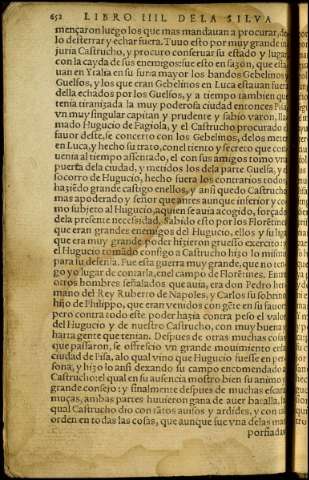 652 LIBRO IIII. DE LA SILVA
mençaron luego los que mas mandauan a procurar, de
lo desterrar y echar fuera. Tuuo esto por muy grande in
juria Castrucho, y procuro conseruar su estado y lugar
con la cayda de sus enemigos: fue esto en sazon, que esta
uan en Ytalia en su furia mayor los bandos Gebelinos y
Guelfos, y los que eran Gebelinos en Luca estauan fuera
della echados por los Guelfos, y a tiempo tambien que
tenia tiranizada la muy poderosa ciudad entonces Pisa,
vn muy singular capitan y prudente y sabio varon, lla
mado Hugucio de Fagiola, y el Castrucho procurado el
fauor deste, se concerto con los Gebelinos, de los meter
en Luca, y hecho su trato, con el tiento y secreto que con
uenia al tiempo assentado, el con sus amigos tomo vna
puerta dela ciudad, y metidos los dela parte Guelfa, y el
socorro de Hugucio, hecho fuera los contrarios todos
haziendo grande castigo en ellos, y ansi quedo Castrucho
mas apoderado y señor que antes aunque inferior y co
mo subjeto al Hugucio, a quien se auia acogido, forçado
dela presente necessidad. Sabido esto por los Florētines
que eran grandes enemigos del Hugucio, ellos y su liga
que era muy grande poder hizieron gruesso exercito: y
el Hugucio tomado consigo a Castrucho hizo lo mismo
para su defensa. Fue esta guerra muy grande, que no ten
go yo lugar de contarla, en el campo de Florētines. Entre
otros hombres señalados que auia, era don Pedro her
mano del Rey Ruberto de Napoles, y Carlos su sobrino
hijo de Philippo, que eran venidos con gēte en su fauor
pero contra todo este poder hazia contra peso el valor
del Hugucio y de nuestro Castrucho, con muy buena y
harta gente que tenian. Despues de otras muchas cosas
que passaron, se offrescio vn grande mouimiento en la
ciudad de Pisa, alo qual vino que Hugucio fuesse en per
sona, y hizo lo ansi dexando su campo encomendado a
Castrucho: el qual en su ausencia mostro bien su animo y
grande consejo: y finalmente despues de muchas escara
muças, ambas partes huuieron gana de auer batalla, la
qual Castrucho dio con tātos auisos y ardides, y con tal
orden en todas las cosas, que aunque fue vna delas mas
porfiadas